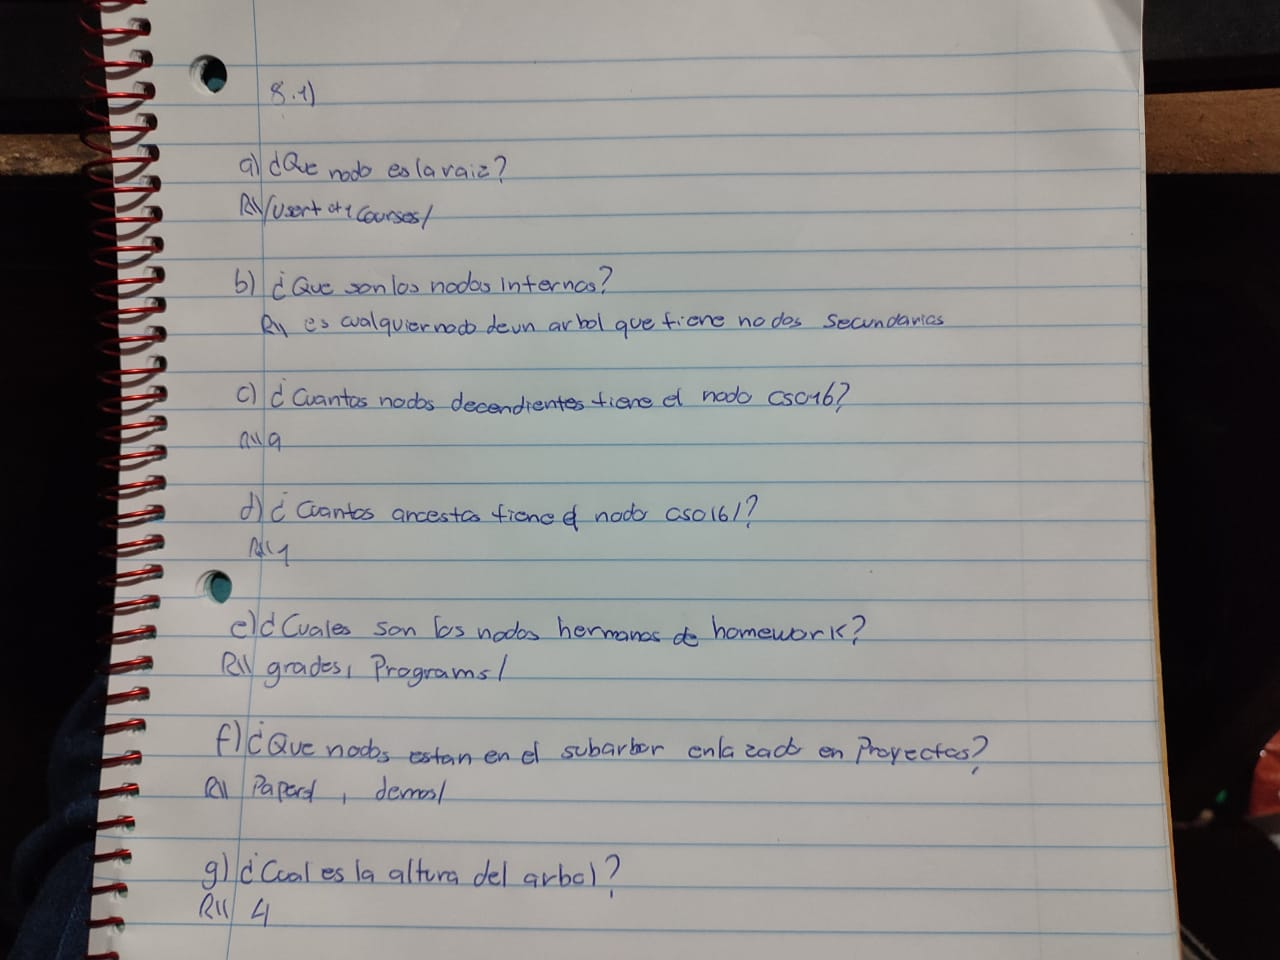 8.1)
a) ¿Que nodo es la raiz?
R\\ /user/rt courses/
b) ¿Que son los nodos internos?
R\\ es cualquier nodo de un arbol que tiene nodos secundarios
c) ¿Cuantos nodos decendientes tiene el nodo cs016?
R\\ 9
d) ¿Cuantos ancestos tiene el nodo cs016/?
R\\ 1
e) ¿Cuales son los nodos hermanos de homework?
R\\ grades, Programs/
f) ¿Que nodos estan en el subarbor enlazado en Proyectos?
R\\ Papers/, demos/
g) ¿Cual es la altura del arbol?
R\\ 4